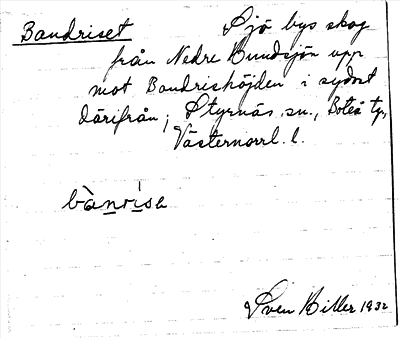 Bandriset Sjö bys skog
från Nedre Bundsjön upp
mot Bandrishöjden i sydost
därifrån; Styrnäs sn., Boteå tg,
Västernorrl. l.
bànrisə
Sven Hiller 1932